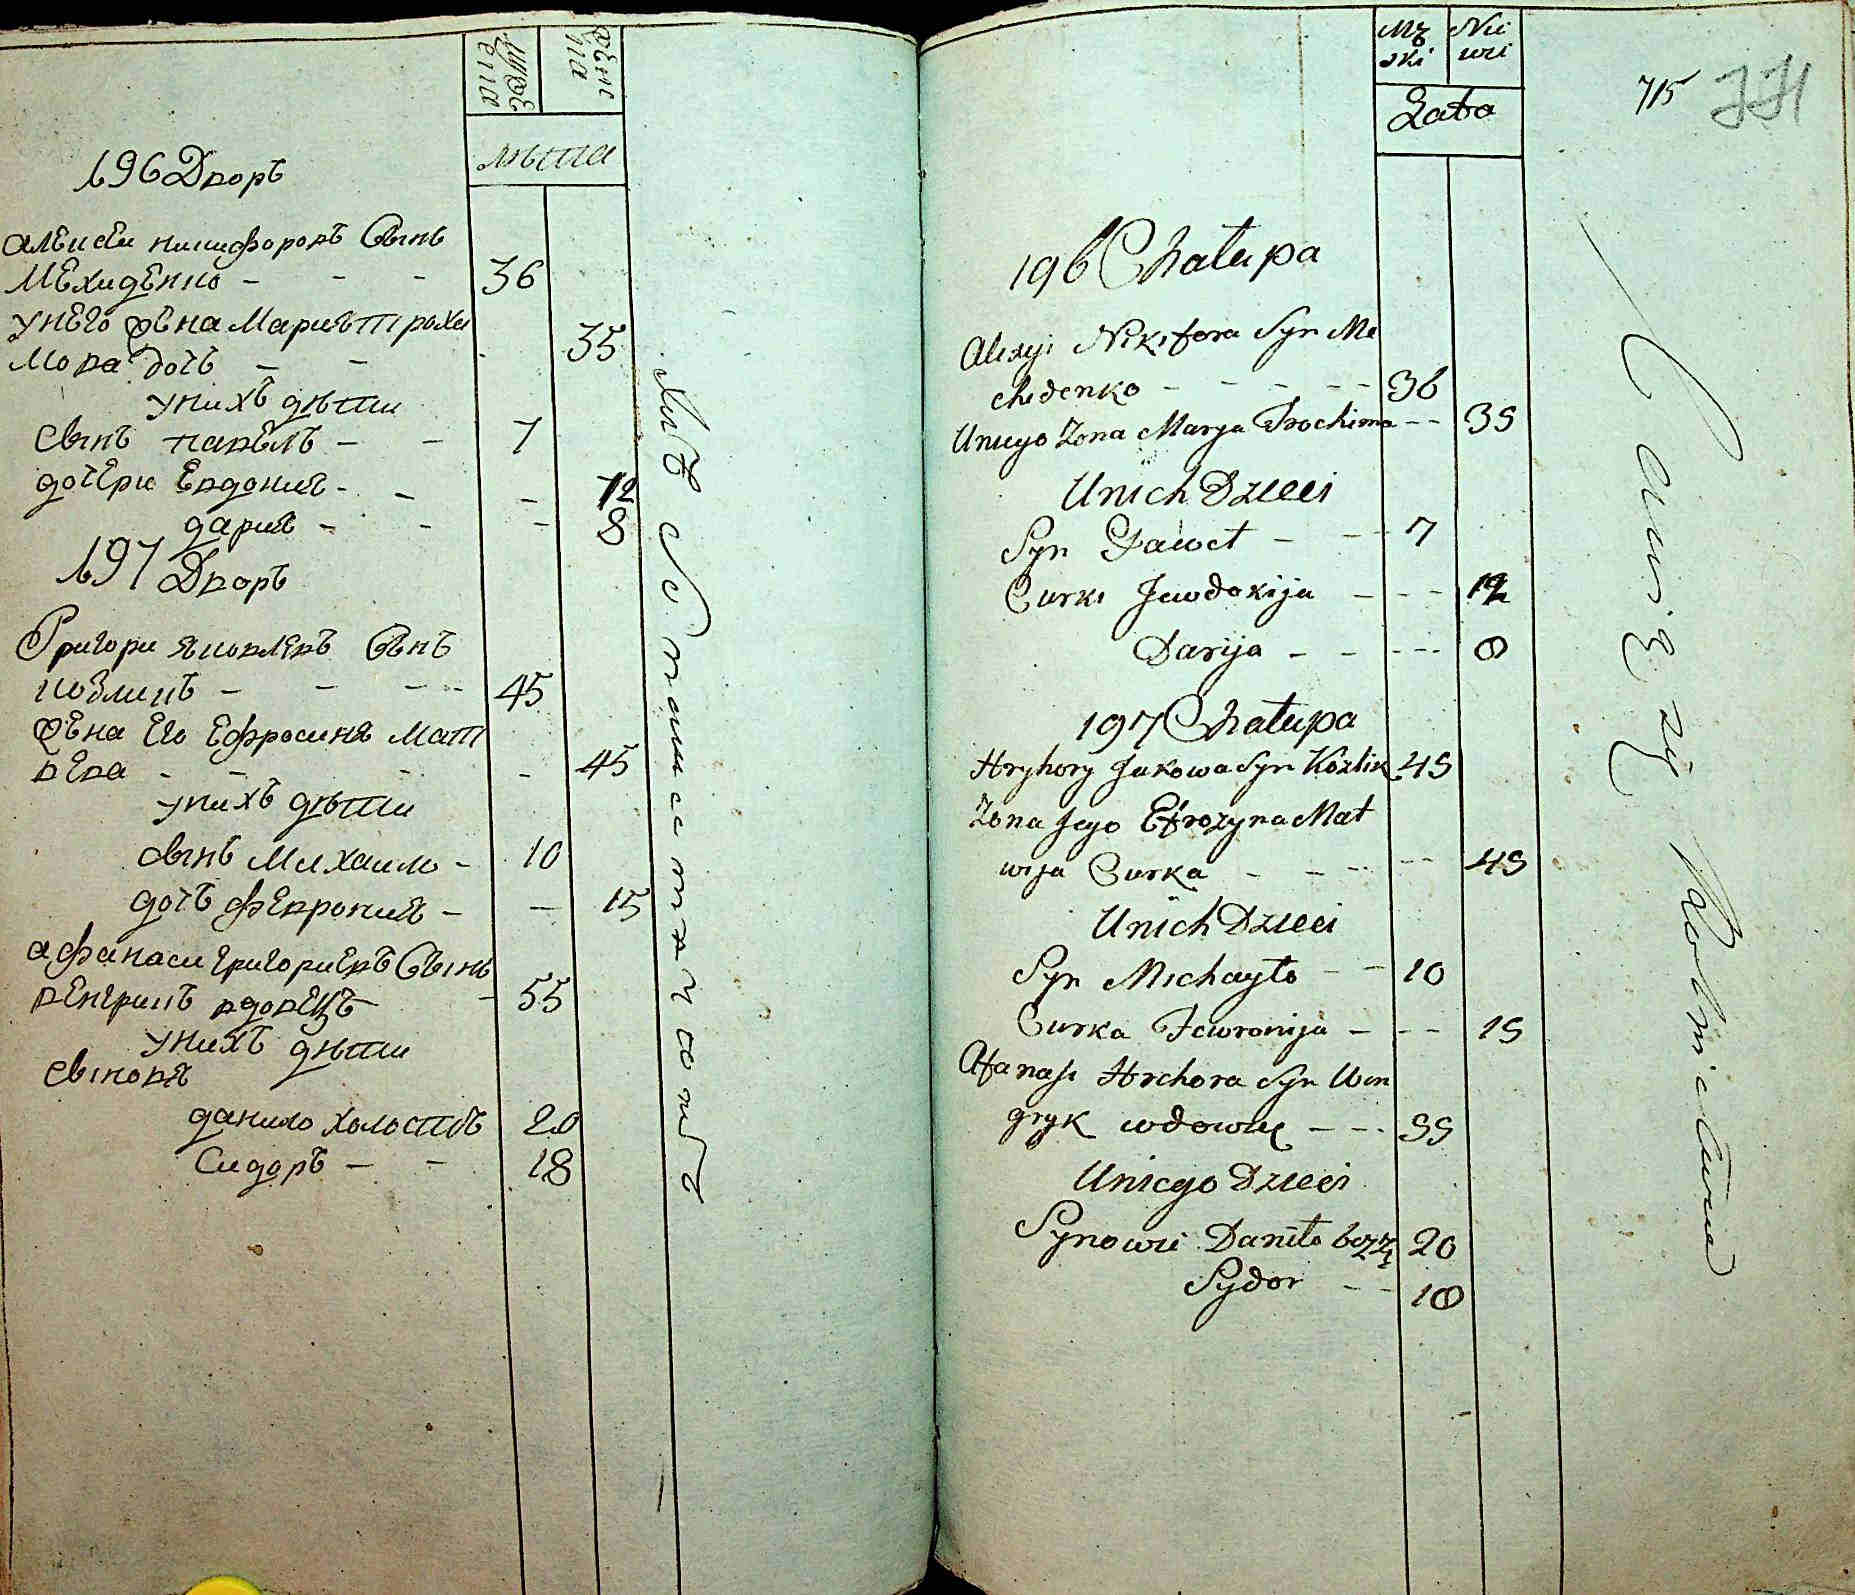 мужеска
женска
лѣта
196 Дворъ
Алексѣи никифоровъ Сынъ
Мехиденко - - - 36
унего жена Марія трохи
мова дочь - - 35
унихъ дѣти
сынъ павелъ - - 7
дочери Евдокия - - - 12
дария - - - 8
197 Дворъ
Григори яковлевъ Сынъ
козликъ - - - 45
жена Его Ефросиня Мат
вева - - - - 45
унихъ дѣти
сынъ Михаило - 10
дочь февронія - - 15
афанаси григориевъ Сынъ
венгрикъ вдовецъ - 55
унихъ дѣти
сыновя
данило холостъ 20
Сидоръ - - 18
Męzki
Niewi
Lata
715
196 Chałupa
Alexyi Nikifora Syn Me
chedenko - - - - - 36
Uniego Zona Marya Trochima - - 35
Unich Dzieci
Syn Paweł - - - 7
Curki Jewdokija - - - 12
Darija - - - - - 8
197 Chałupa
Hryhory Jakowa Syn Kozlik 45
Zona Jego Efrozyna Mat
wija Curka - - - - - 45
Unich Dzieci
Syn Michayło - - 10
Curka Fewronija - - - 15
Afanasi Hrehora Syn Wen
gryk wdowiec - - - 55
Uniego Dzieci
Synowie Daniło bezz 20
Sydor - - 18